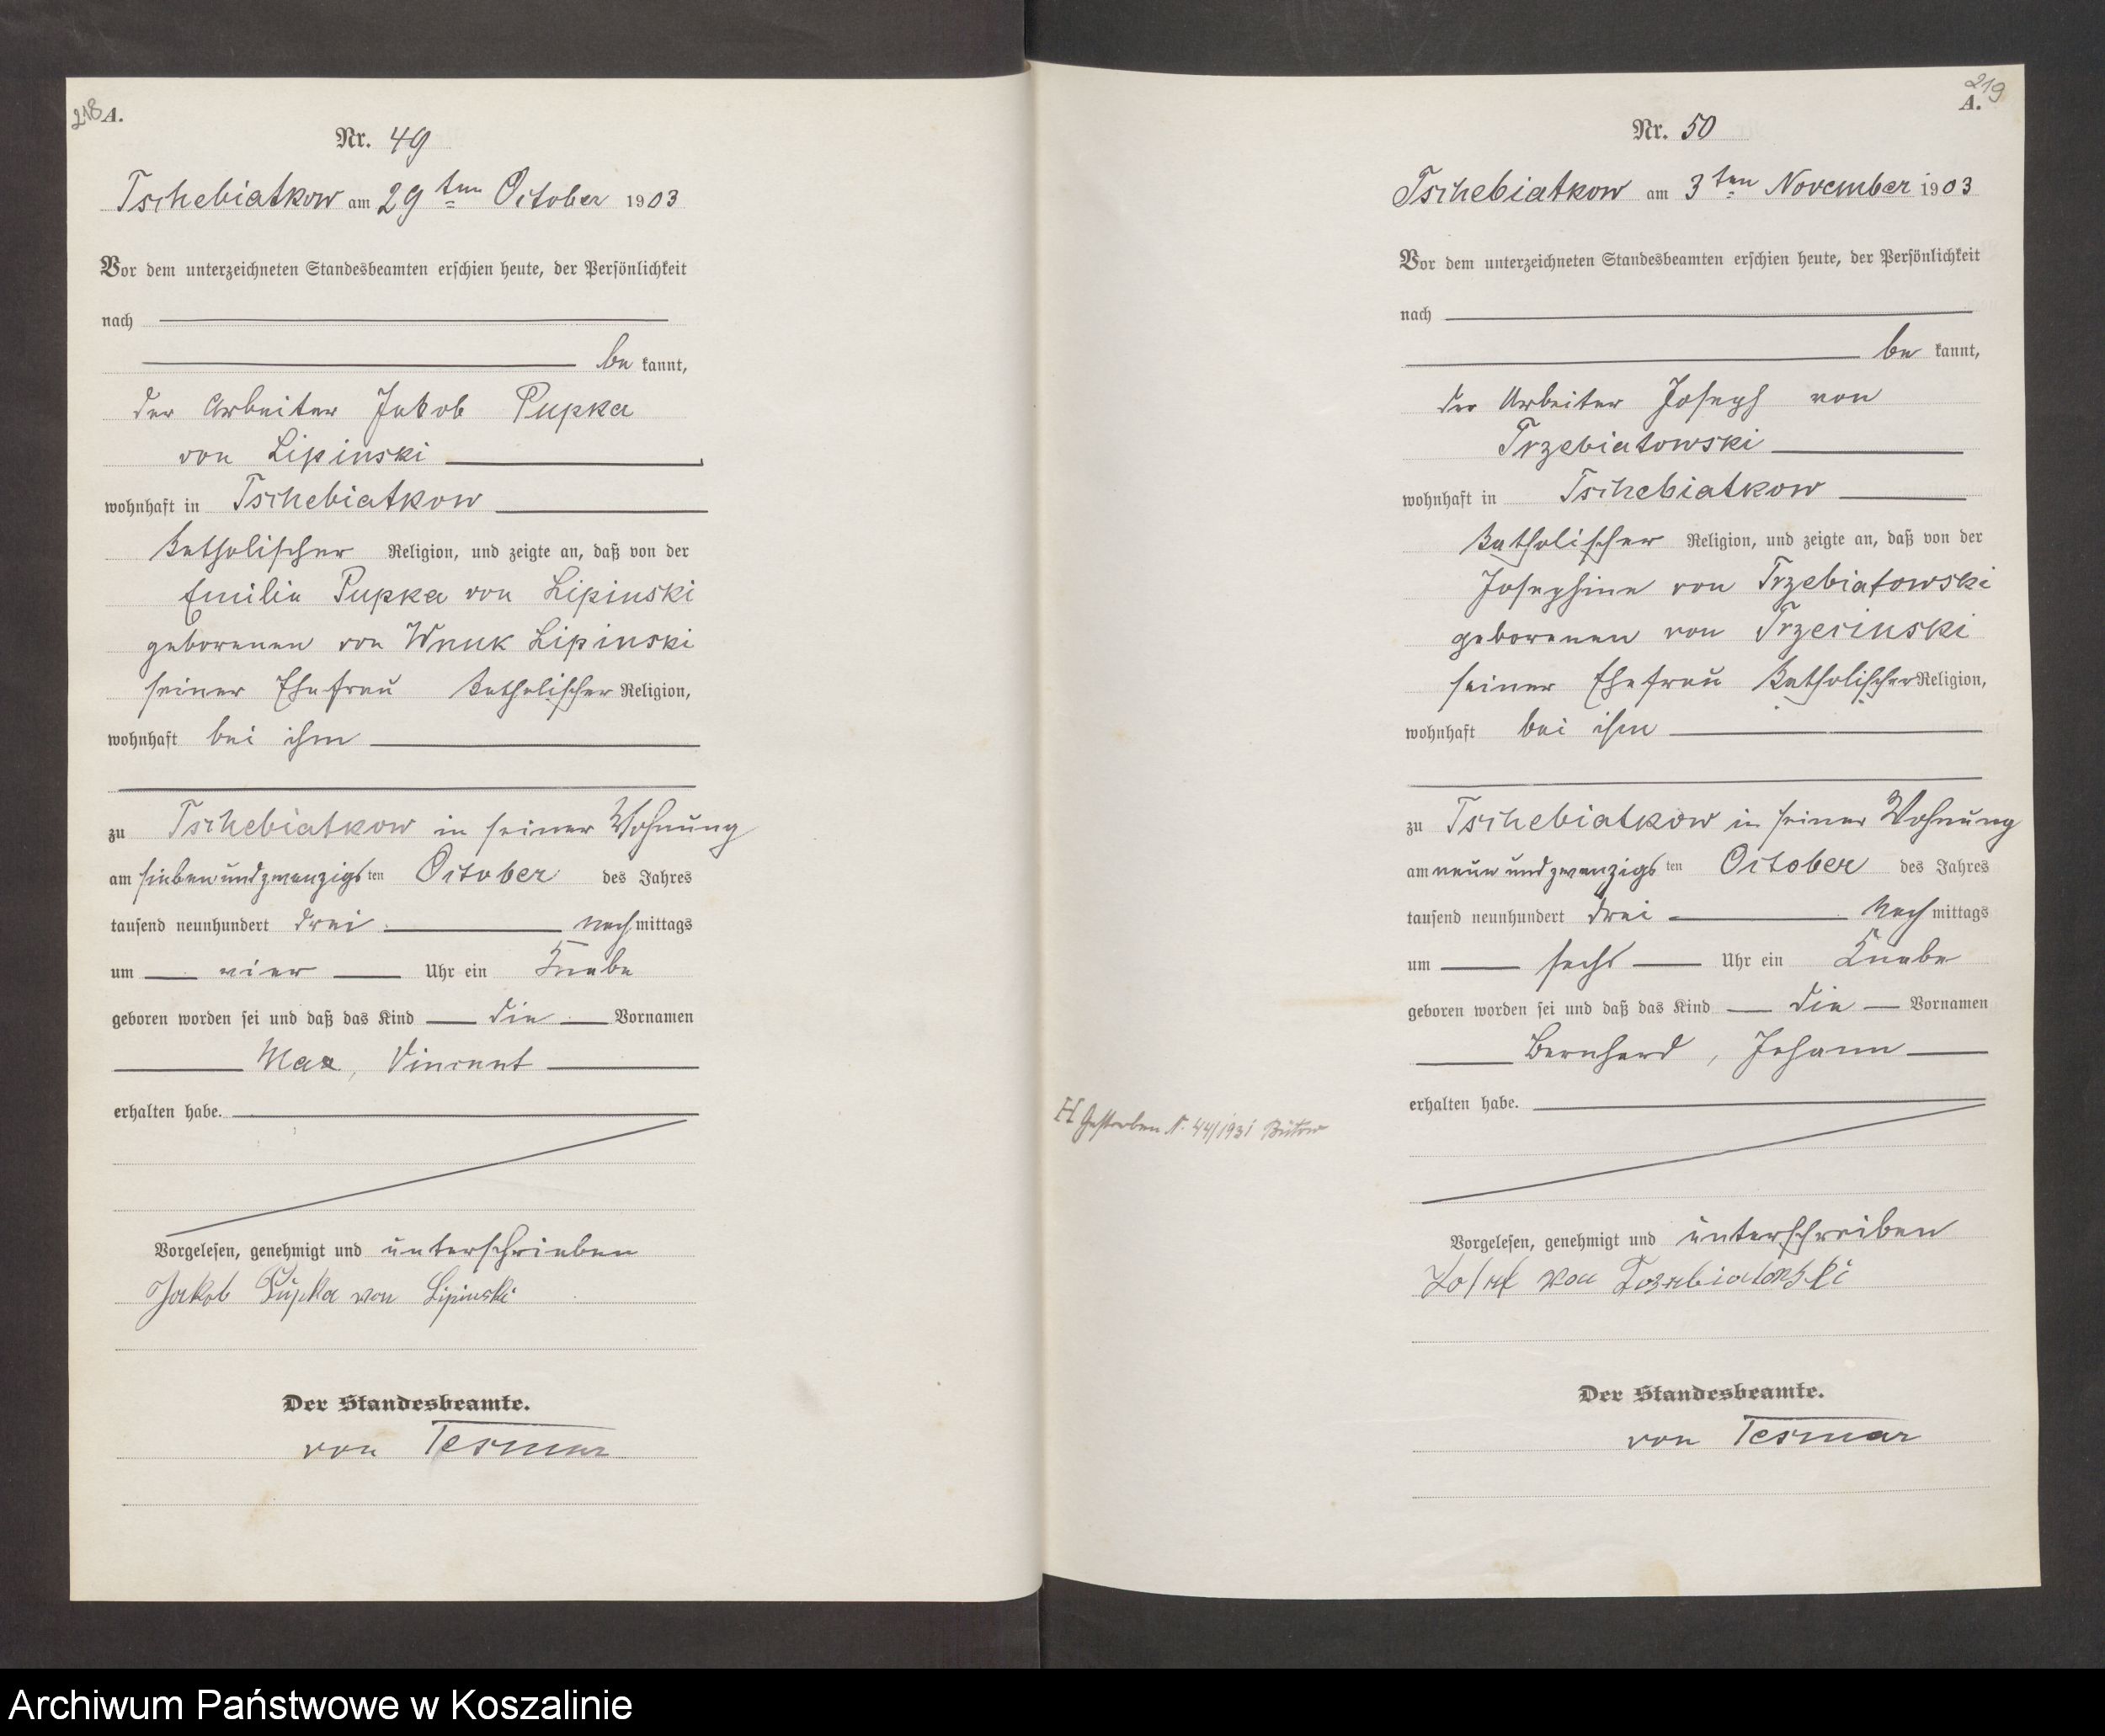 218 A.
Nr. 49
Tschebiatkow am 29ten October 1903
Vor dem unterzeichneten Standesbeamten erschien heute, der Persönlichkeit
nach
be kannt,
der Arbeiter Jakob Pupka
von Lipinski
wohnhaft in Tschebiatkow
katholischer Religion, und zeigte an, daß von der
Emilie Pupka von Lipinski
geborenen von Wnuk Lipinski
seiner Ehefrau katholischer Religion,
wohnhaft bei ihm
zu Tschebiatkow in seiner Wohnung
am siebenundzwanzigsten October des Jahres
tausend neunhundert drei nachmittags
um vier Uhr ein Knabe
geboren worden sei und daß das Kind die Vornamen
Max, Vincent
erhalten habe.
Vorgelesen, genehmigt und unterschrieben
Jakob Pupka von Lipinski
Der Standesbeamte.
von Tesmar
219
A.
Nr. 50
Tschebiatkow am 3ten November 1903
Vor dem unterzeichneten Standesbeamten erschien heute, der Persönlichkeit
nach
be kannt,
der Arbeiter Joseph von
Trzebiatowski
wohnhaft in Tschebiatkow
katholischer Religion, und zeigte an, daß von der
Josephine von Trzebiatowski
geborenen von Trzecinski
seiner Ehefrau katholischer Religion,
wohnhaft bei ihm
zu Tschebiatkow in seiner Wohnung
am neunundzwanzigsten October des Jahres
tausend neunhundert drei Nachmittags
um sechs Uhr ein Knabe
geboren worden sei und daß das Kind die Vornamen
Bernhard, Johann
erhalten habe.
H Gestorben N. 44/1931 Bütow
Vorgelesen, genehmigt und unterschreiben
von
Der Standesbeamte.
von Tesmar
Archiwum Państwowe w Koszalinie